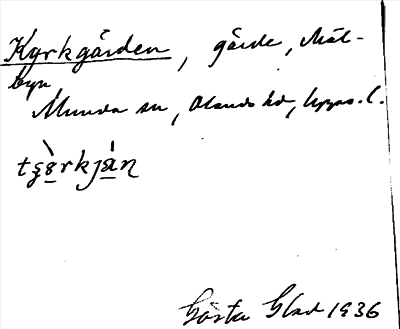 Kyrkgården, gärde, Mäl-
byn
Munda sn, Olands hd, Upps. l.
tʂèrkjàn
Gösta Glad 1936